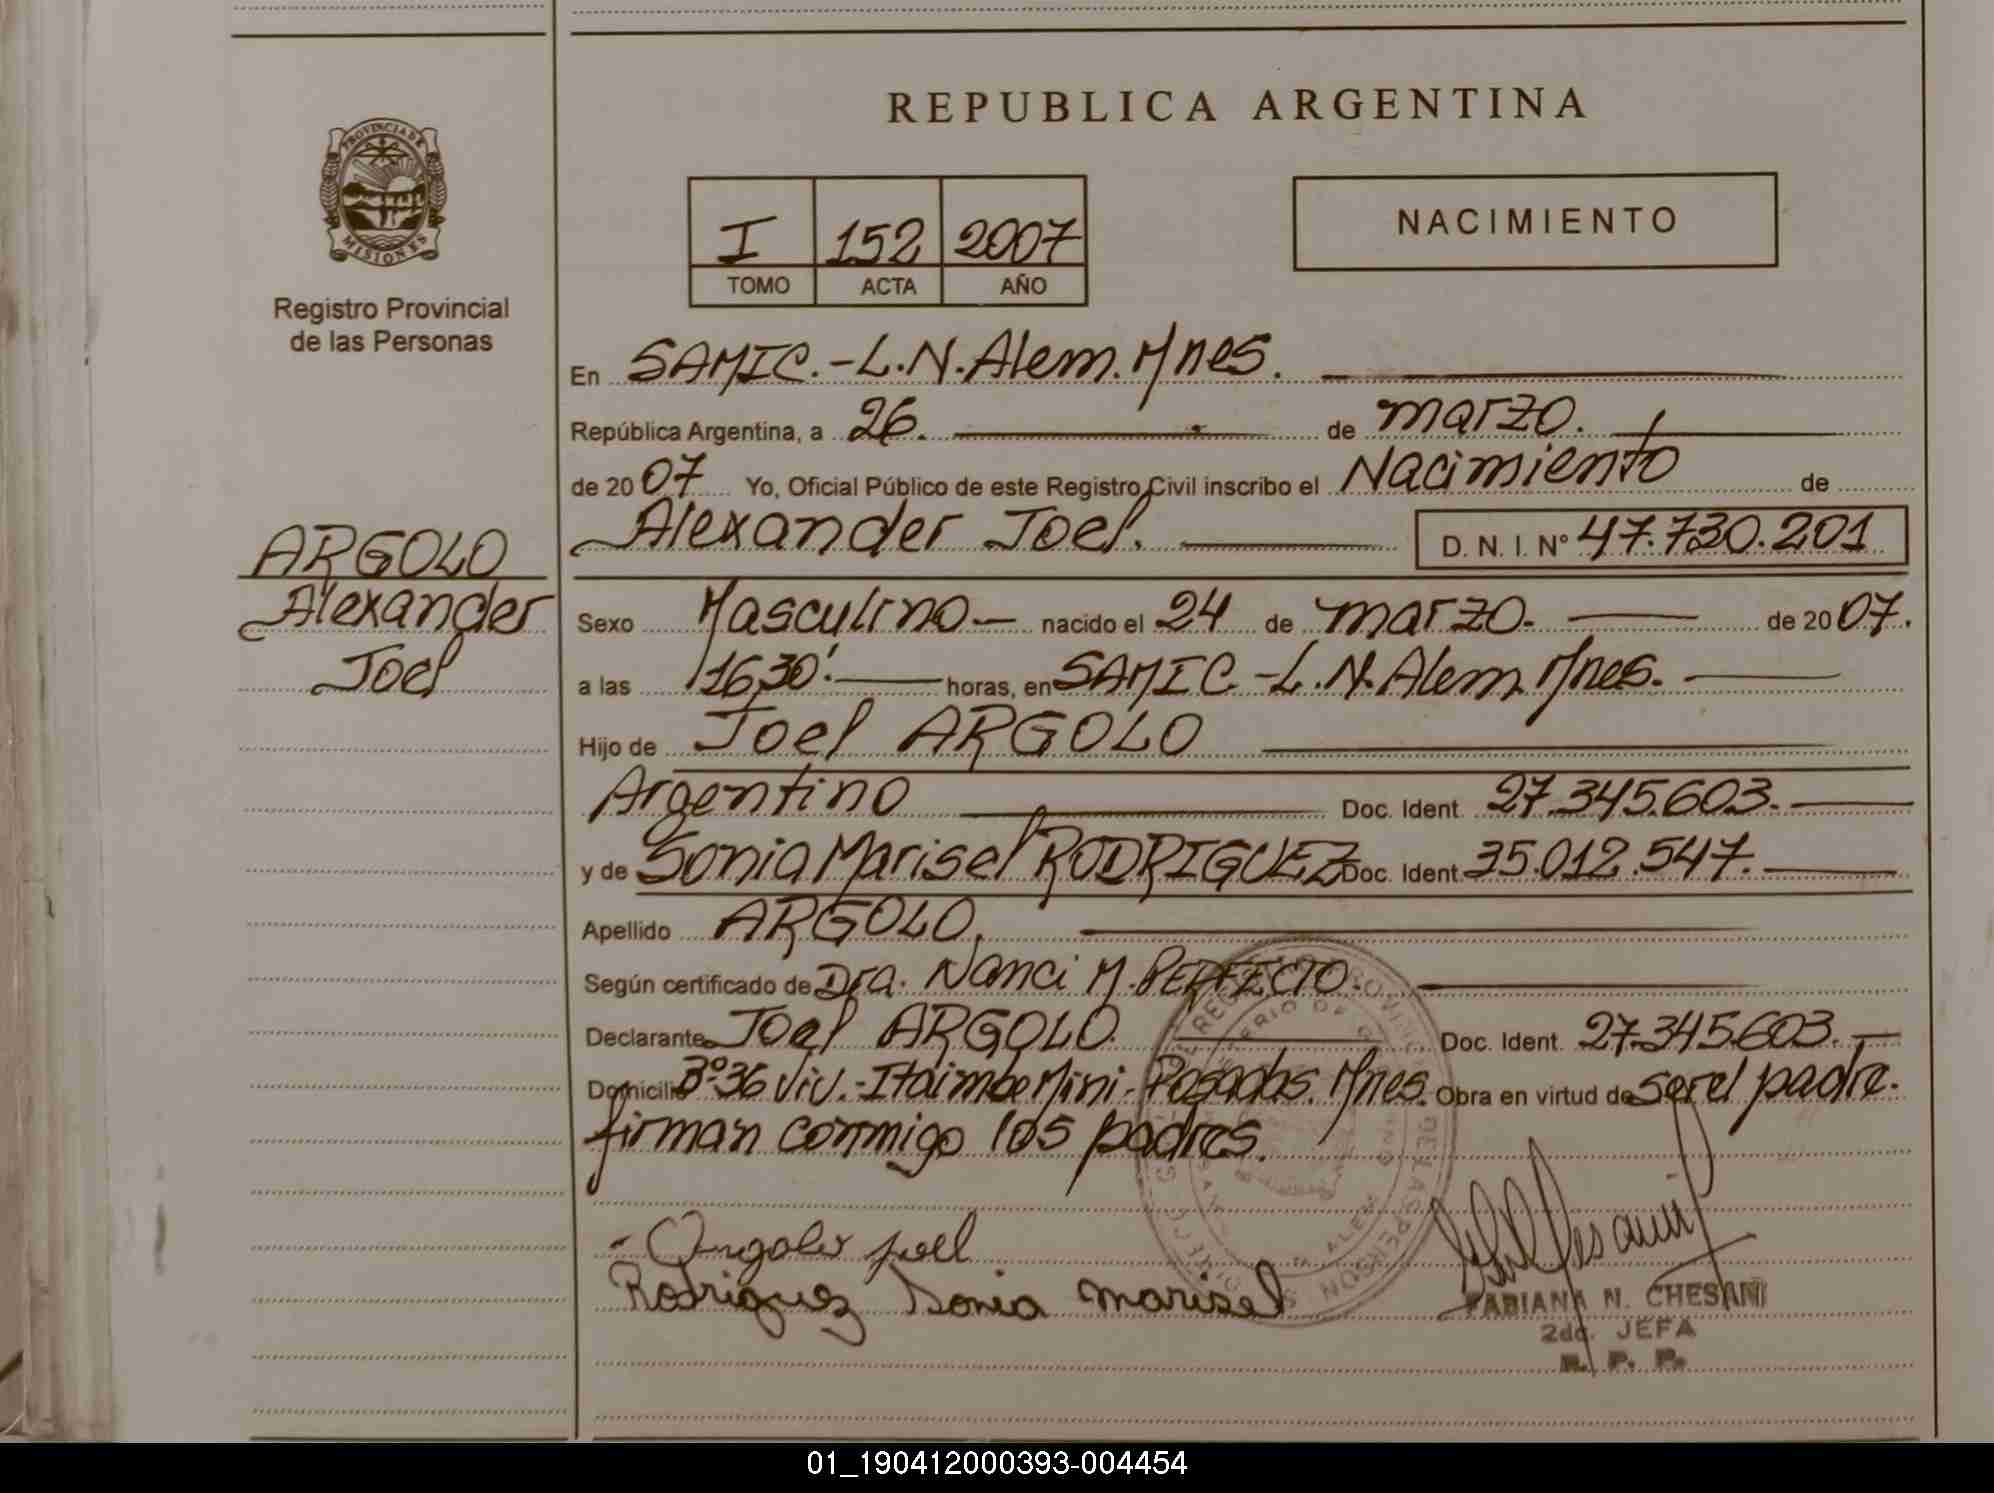 PROVINCIA DE
MISIONES
Registro Provincial
de las Personas
ARGOLO
Alexander
Joel
REPUBLICA ARGENTINA
I 152 2007
TOMO ACTA AÑO
NACIMIENTO
En SAMIC.-L.N.Alem.Mnes.
República Argentina, a 26. de marzo.
de 2007 Yo, Oficial Público de este Registro Civil inscribo el Nacimiento de
Alexander Joel. D. N. I. N° 47.730.201
Sexo Masculino- nacido el 24 de marzo. de 2007.
a las 16,30'. horas, en SAMIC -L.N.Alem.Mnes.
Hijo de Joel ARGOLO
Argentino Doc. Ident. 27.345.603.
y de Sonia Marisel RODRIGUEZ Doc. Ident. 35.012.547.
Apellido ARGOLO.
Según certificado de Dra. Nanci M. PERFECTO.
Declarante Joel ARGOLO. Doc. Ident. 27.345.603.
Domicilio Bº36 Viv.-Itaimbe Mini-Posadas.Mnes. Obra en virtud de ser el padre.
firman conmigo los padres.
- Argolo Joel
Rodriguez Sonia Marisel
FABIANA N. CHESANI
2da. JEFA
R. P. P.
01_190412000393-004454